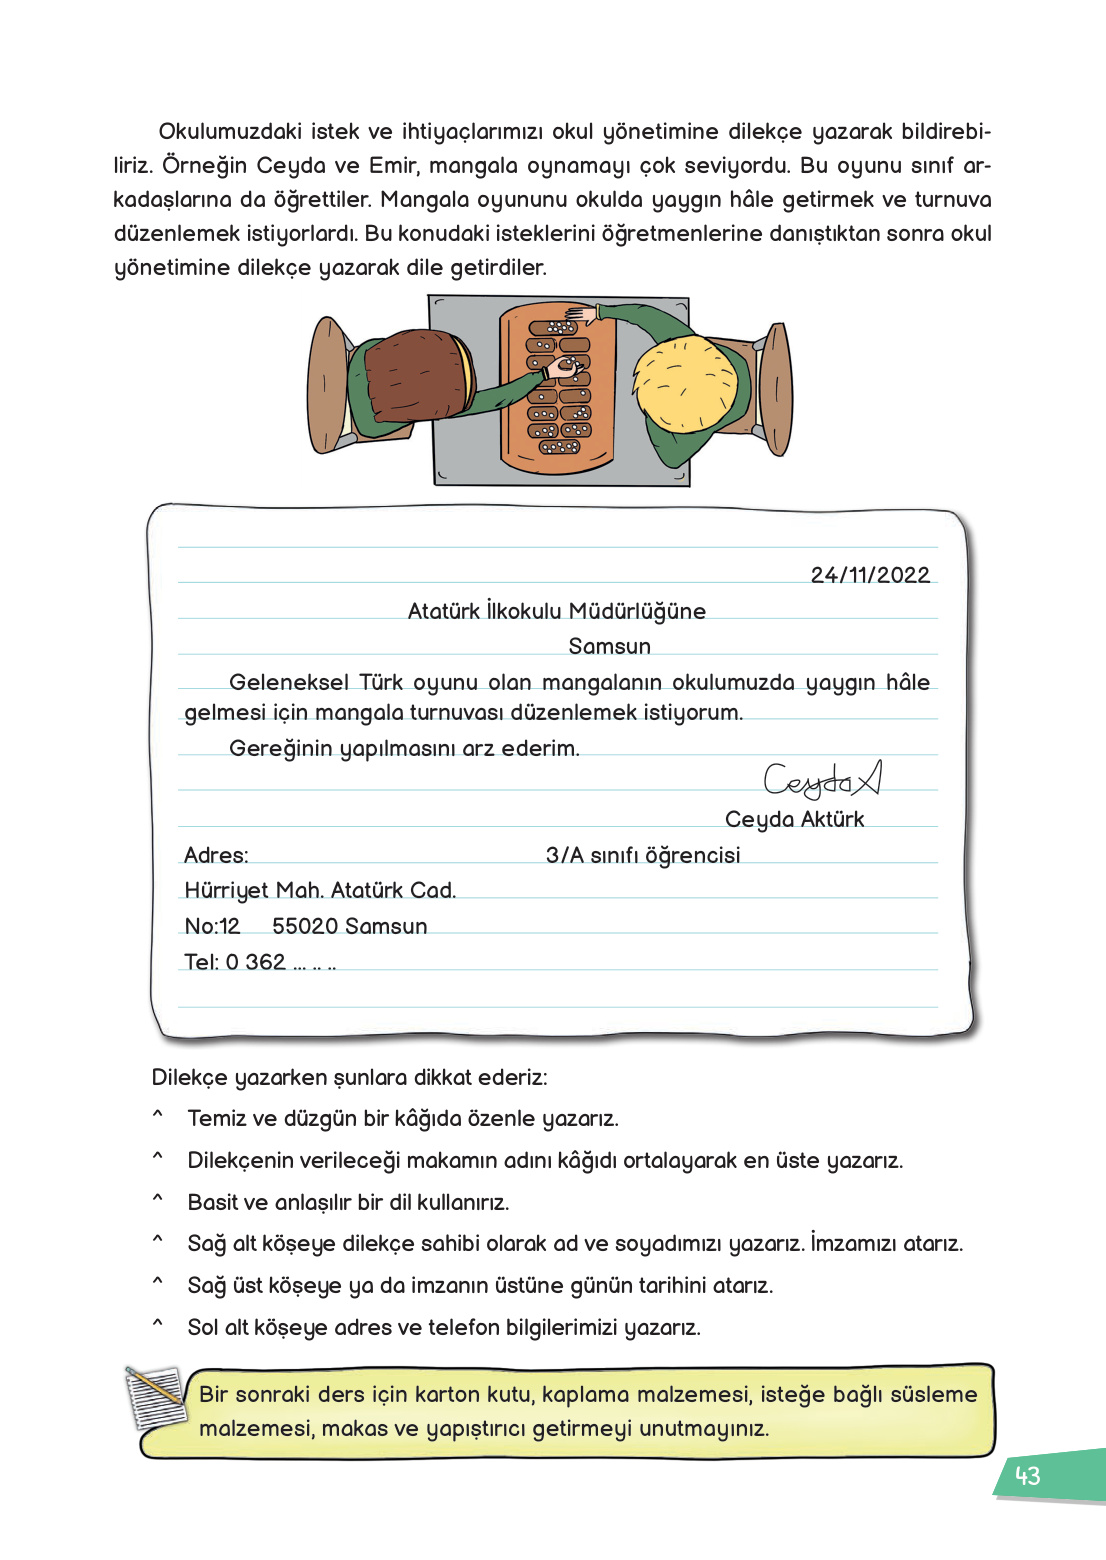 Okulumuzdaki istek ve ihtiyaçlarımızı okul yönetimine dilekçe yazarak bildirebi-
liriz. Örneğin Ceyda ve Emir, mangala oynamayı çok seviyordu. Bu oyunu sınıf ar-
kadaşlarına da öğrettiler. Mangala oyununu okulda yaygın hâle getirmek ve turnuva
düzenlemek istiyorlardı. Bu konudaki isteklerini öğretmenlerine danıştıktan sonra okul
yönetimine dilekçe yazarak dile getirdiler.
24/11/2022
Atatürk İlkokulu Müdürlüğüne
Samsun
Geleneksel Türk oyunu olan mangalanın okulumuzda yaygın hâle
gelmesi için mangala turnuvası düzenlemek istiyorum.
Gereğinin yapılmasını arz ederim.
Ceyda A
Ceyda Aktürk
Adres: 3/A sınıfı öğrencisi
Hürriyet Mah. Atatürk Cad.
No:12 55020 Samsun
Tel: 0 362 ... .. ..
Dilekçe yazarken şunlara dikkat ederiz:
^ Temiz ve düzgün bir kâğıda özenle yazarız.
^ Dilekçenin verileceği makamın adını kâğıdı ortalayarak en üste yazarız.
^ Basit ve anlaşılır bir dil kullanırız.
^ Sağ alt köşeye dilekçe sahibi olarak ad ve soyadımızı yazarız. İmzamızı atarız.
^ Sağ üst köşeye ya da imzanın üstüne günün tarihini atarız.
^ Sol alt köşeye adres ve telefon bilgilerimizi yazarız.
Bir sonraki ders için karton kutu, kaplama malzemesi, isteğe bağlı süsleme
malzemesi, makas ve yapıştırıcı getirmeyi unutmayınız.
43